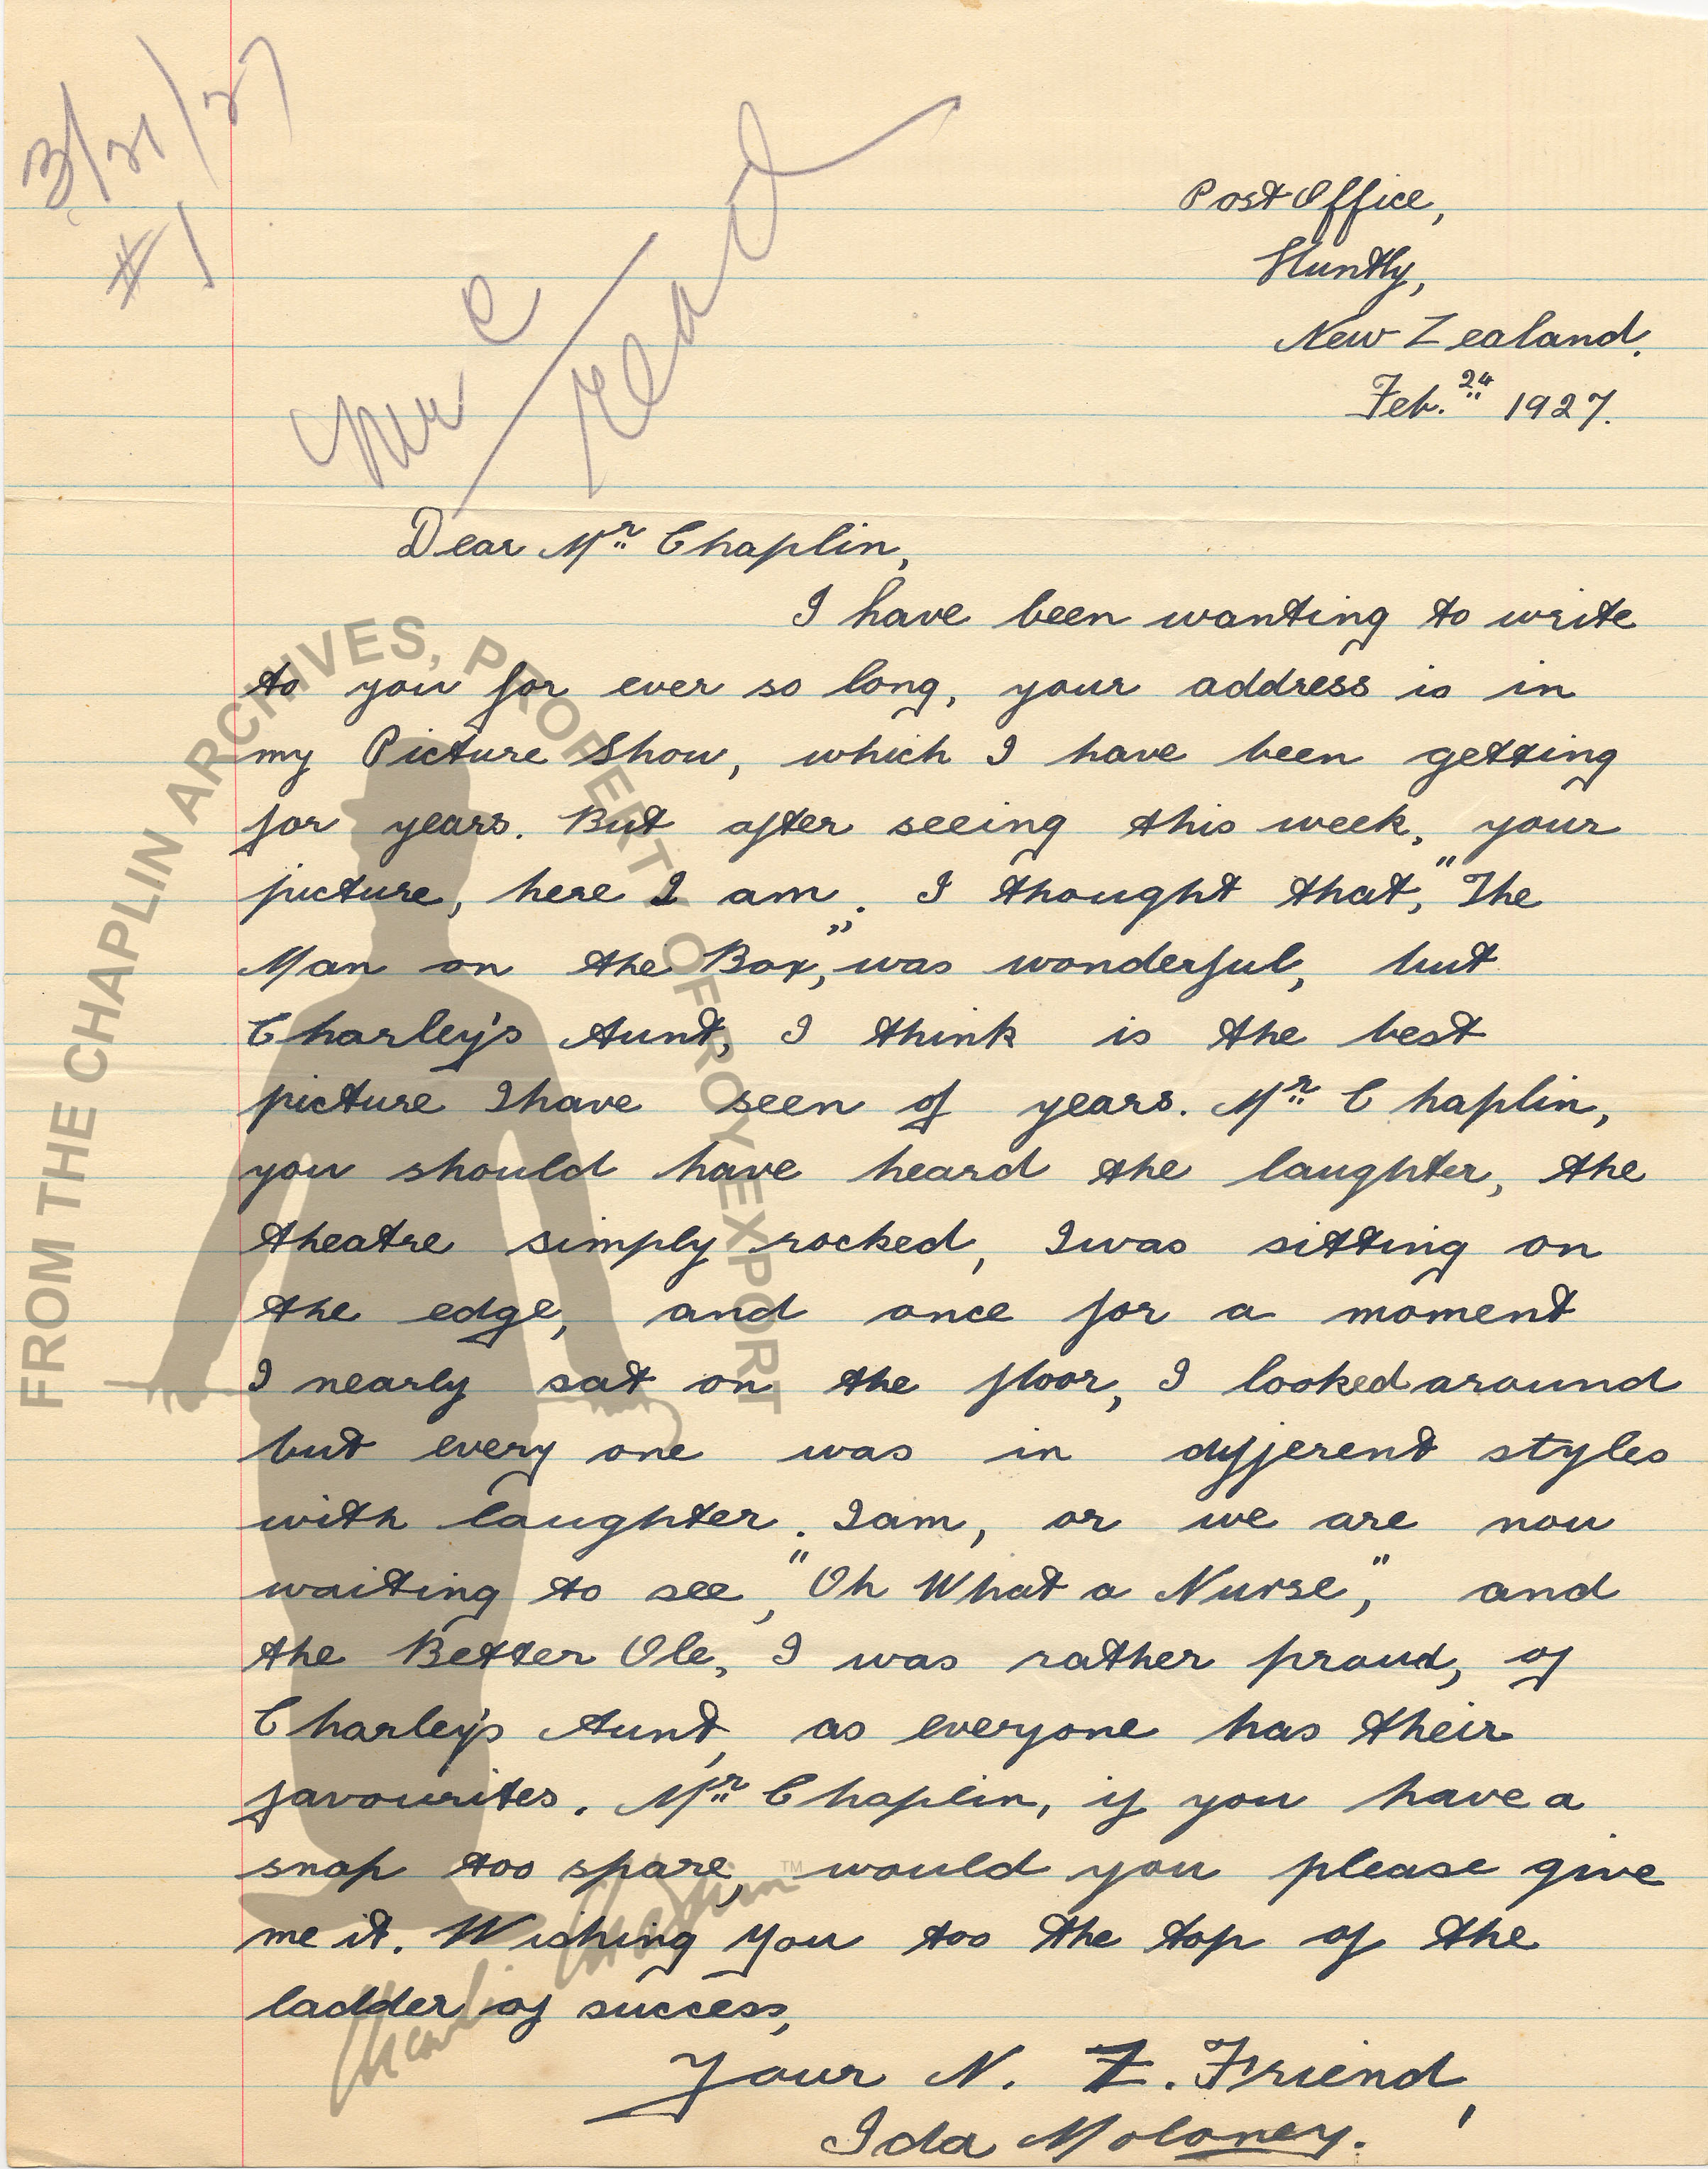 3/21/27
#1
Mr C
read
Post Office,
Huntly,
New Zealand.
Feb. 24 1927.
Dear Mr Chaplin,
I have been wanting to write
to you for ever so long, your address is in
my Picture Show, which I have been getting
for years. But after seeing this week, your
picture, here I am. I thought that, "The
Man on the Box," was wonderful, but
Charley's Aunt, I think is the best
picture I have seen of years. Mr Chaplin,
you should have heard the laughter, the
theatre simply rocked, I was sitting on
the edge, and once for a moment
I nearly sat on the floor, I looked around
but every one was in different styles
with laughter. I am, or we are now
waiting to see, "Oh What a Nurse", and
the Better Ole, I was rather proud, of
Charley's Aunt, as everyone has their
favourites. Mr Chaplin, if you have a
snap too spare, would you please give
me it. Wishing you too the top of the
ladder of success,
Your N. Z. Friend,
Ida Moloney.
FROM THE CHAPLIN ARCHIVES, PROPERTY OF ROY EXPORT
Charlie Chaplin ™